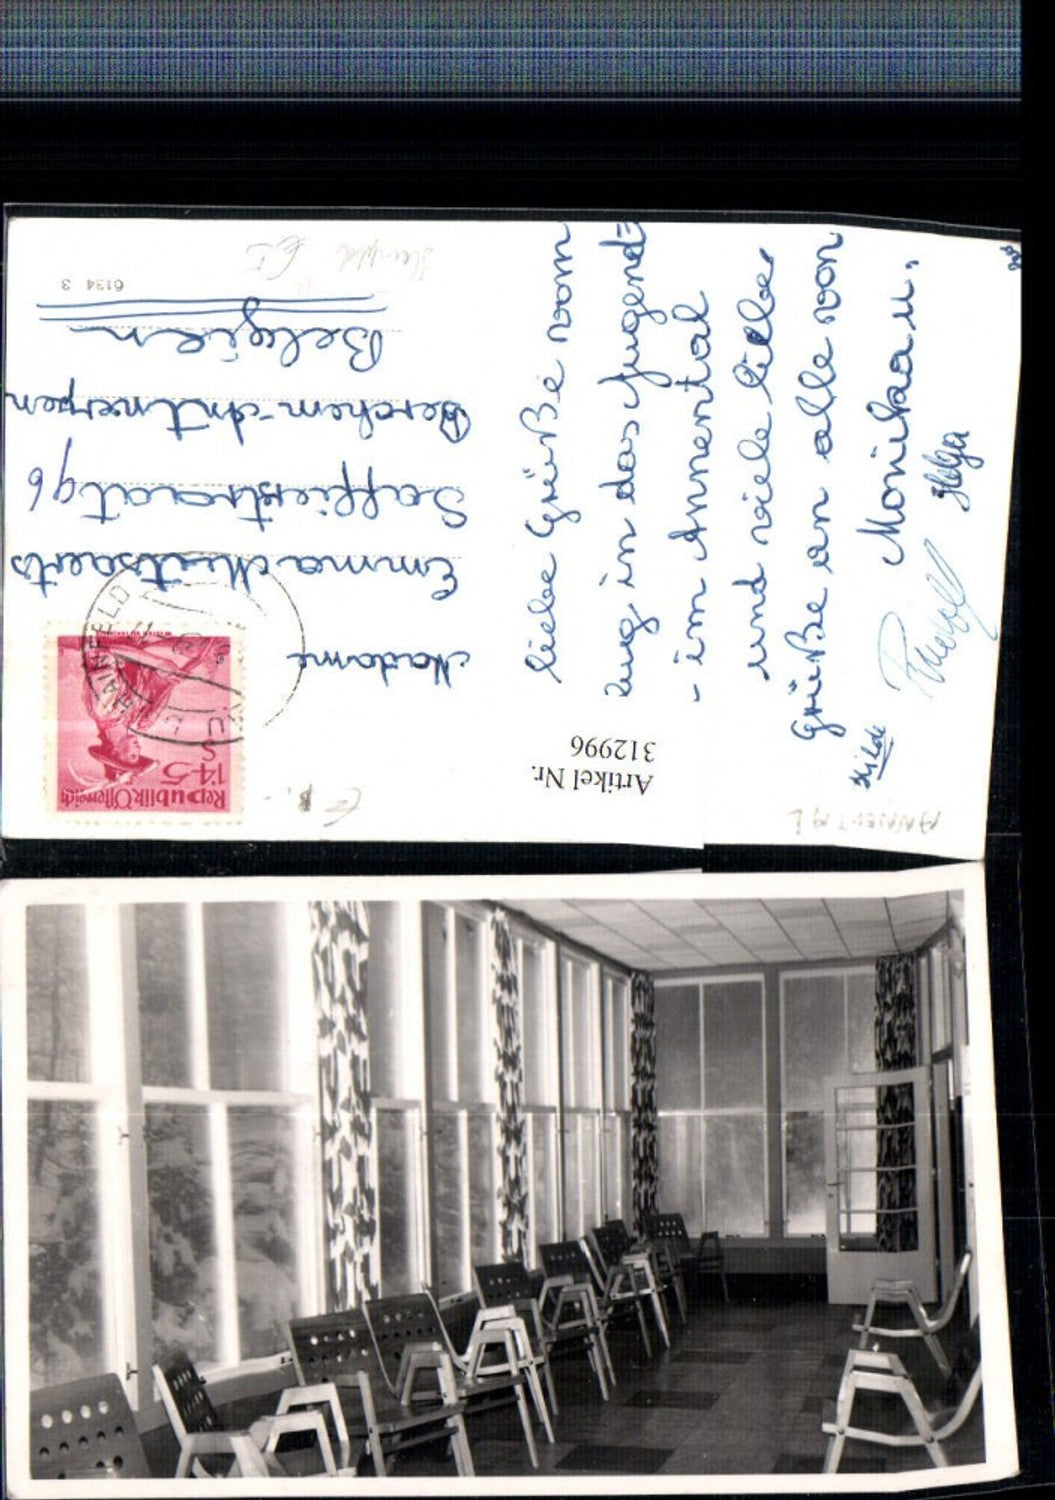 Liebe Grüße vom
zug in das Jugend=
- im Annental
und viele liebe
Grüße an alle von
Monika u.
Helga
Rudolf
Hilde
Madame
Emma
Saffierstraat 96
Berchem-Antwerpen
Belgien
6134 3
Republik Österreich
S 1·45
HAINFELD
Artikel Nr.
312996
ANNENTAL